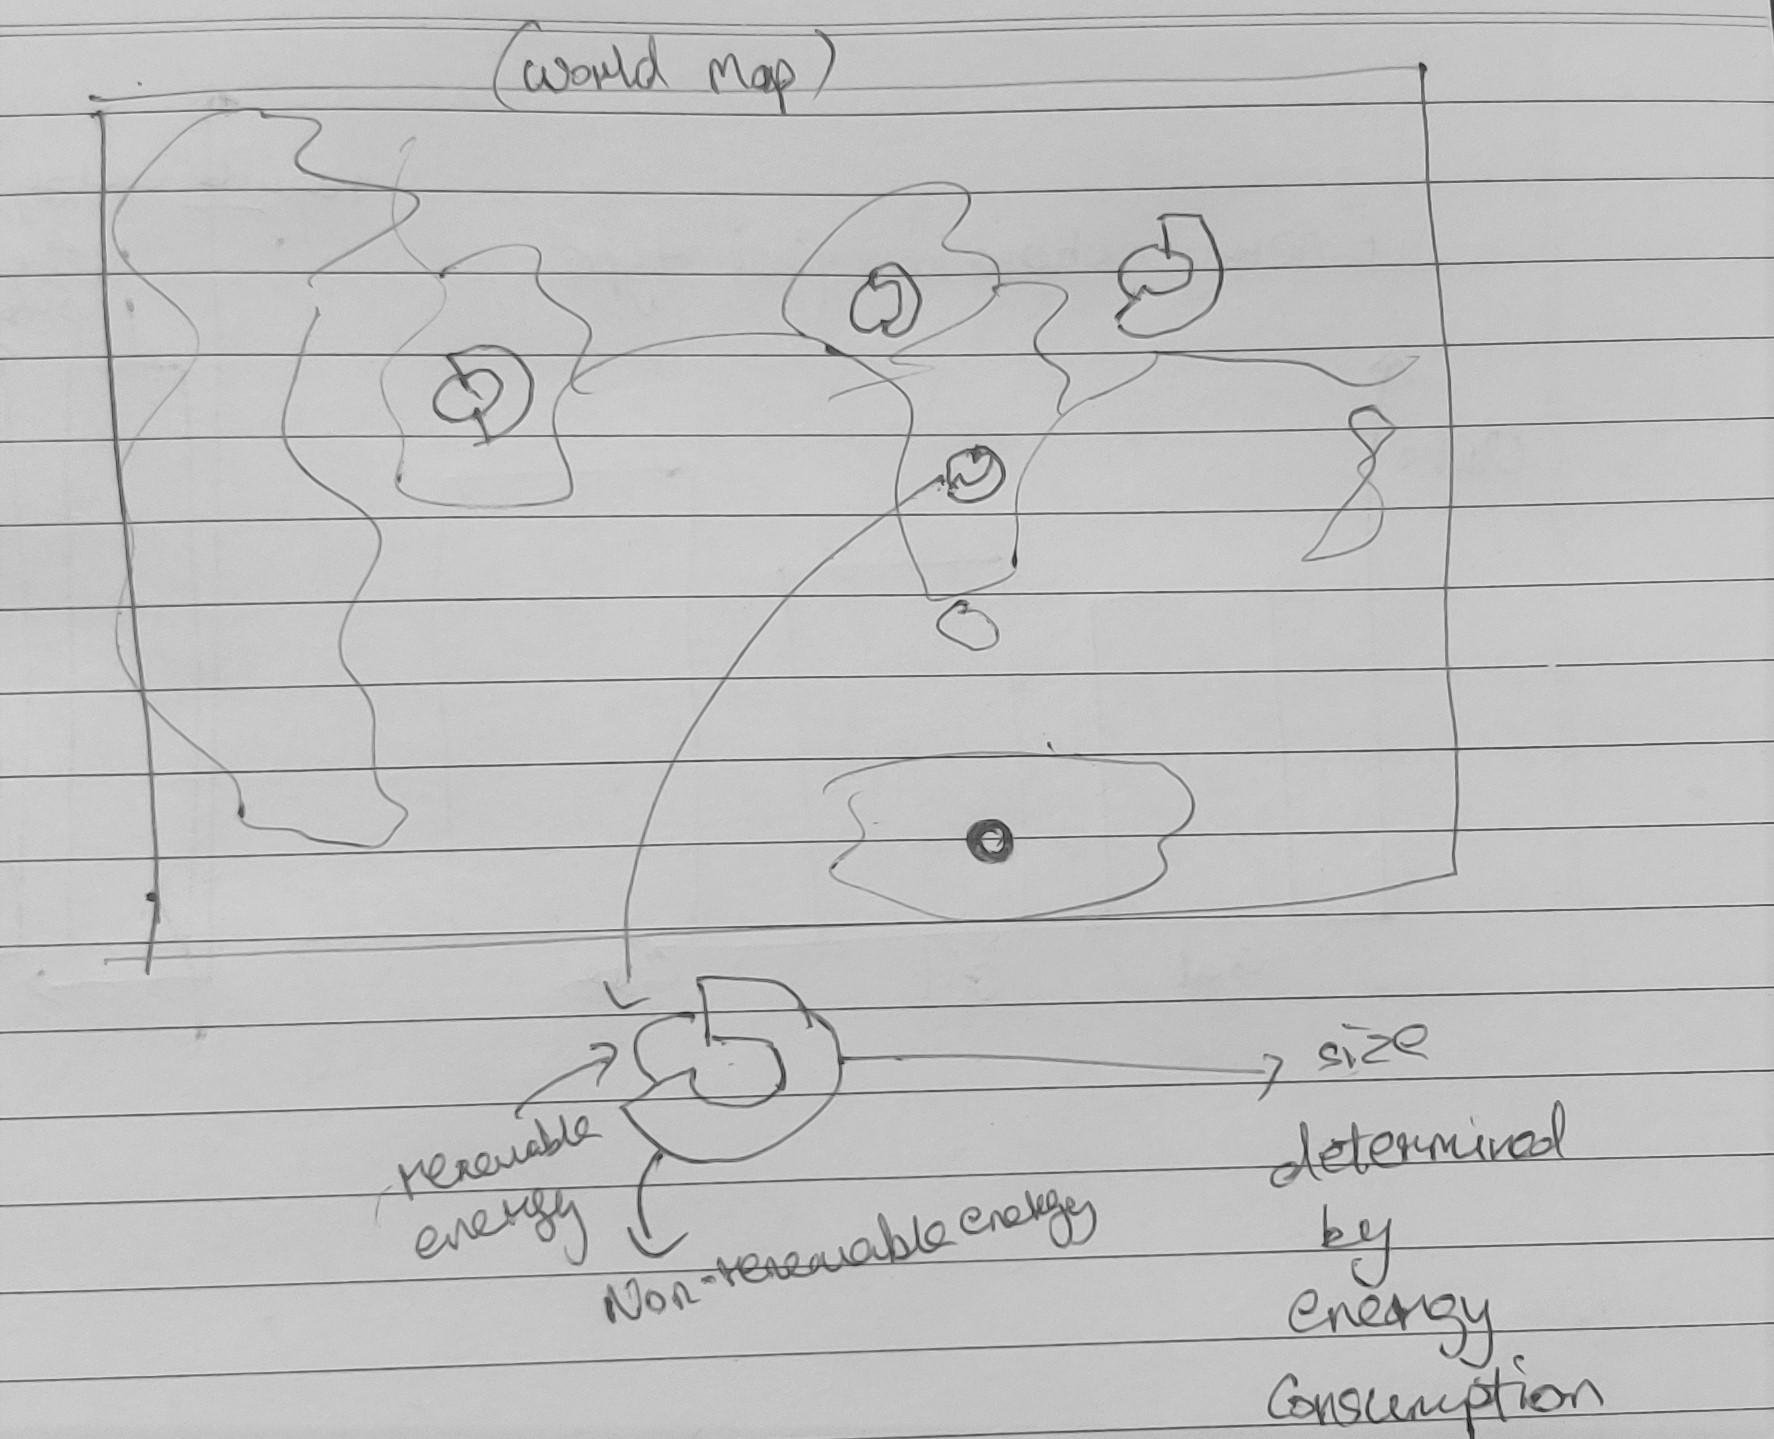 (World Map)
size
renewable
energy
Non-renewable energy
determined
by
energy
Consumption